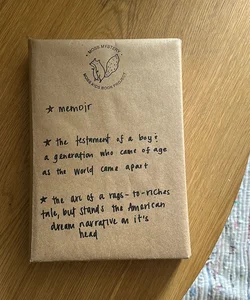 A MOSH MYSTERY
MORE KIDS BOOK PROJECT
★ memoir
★ the testament of a boy &
a generation who came of age
as the world came apart
★ the arc of a rags-to-riches
tale, but stands the American
dream narrative on it's
head